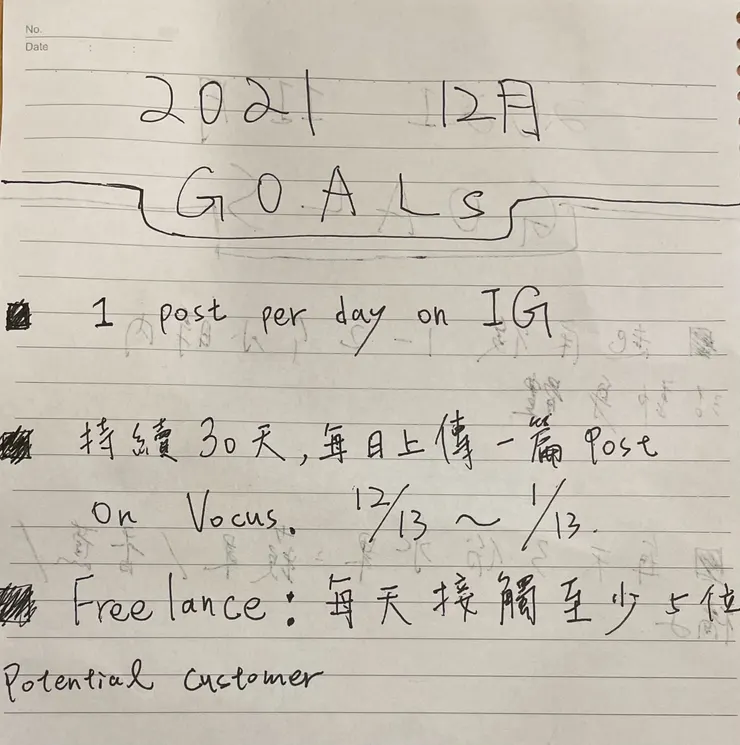 No.
Date : :
2021 12月
GOALs
1 post per day on IG
持續30天,每日上傳一篇Post
on Vocus. 12/13 ~ 1/13.
Freelance:每天接觸至少5位
Potential customer